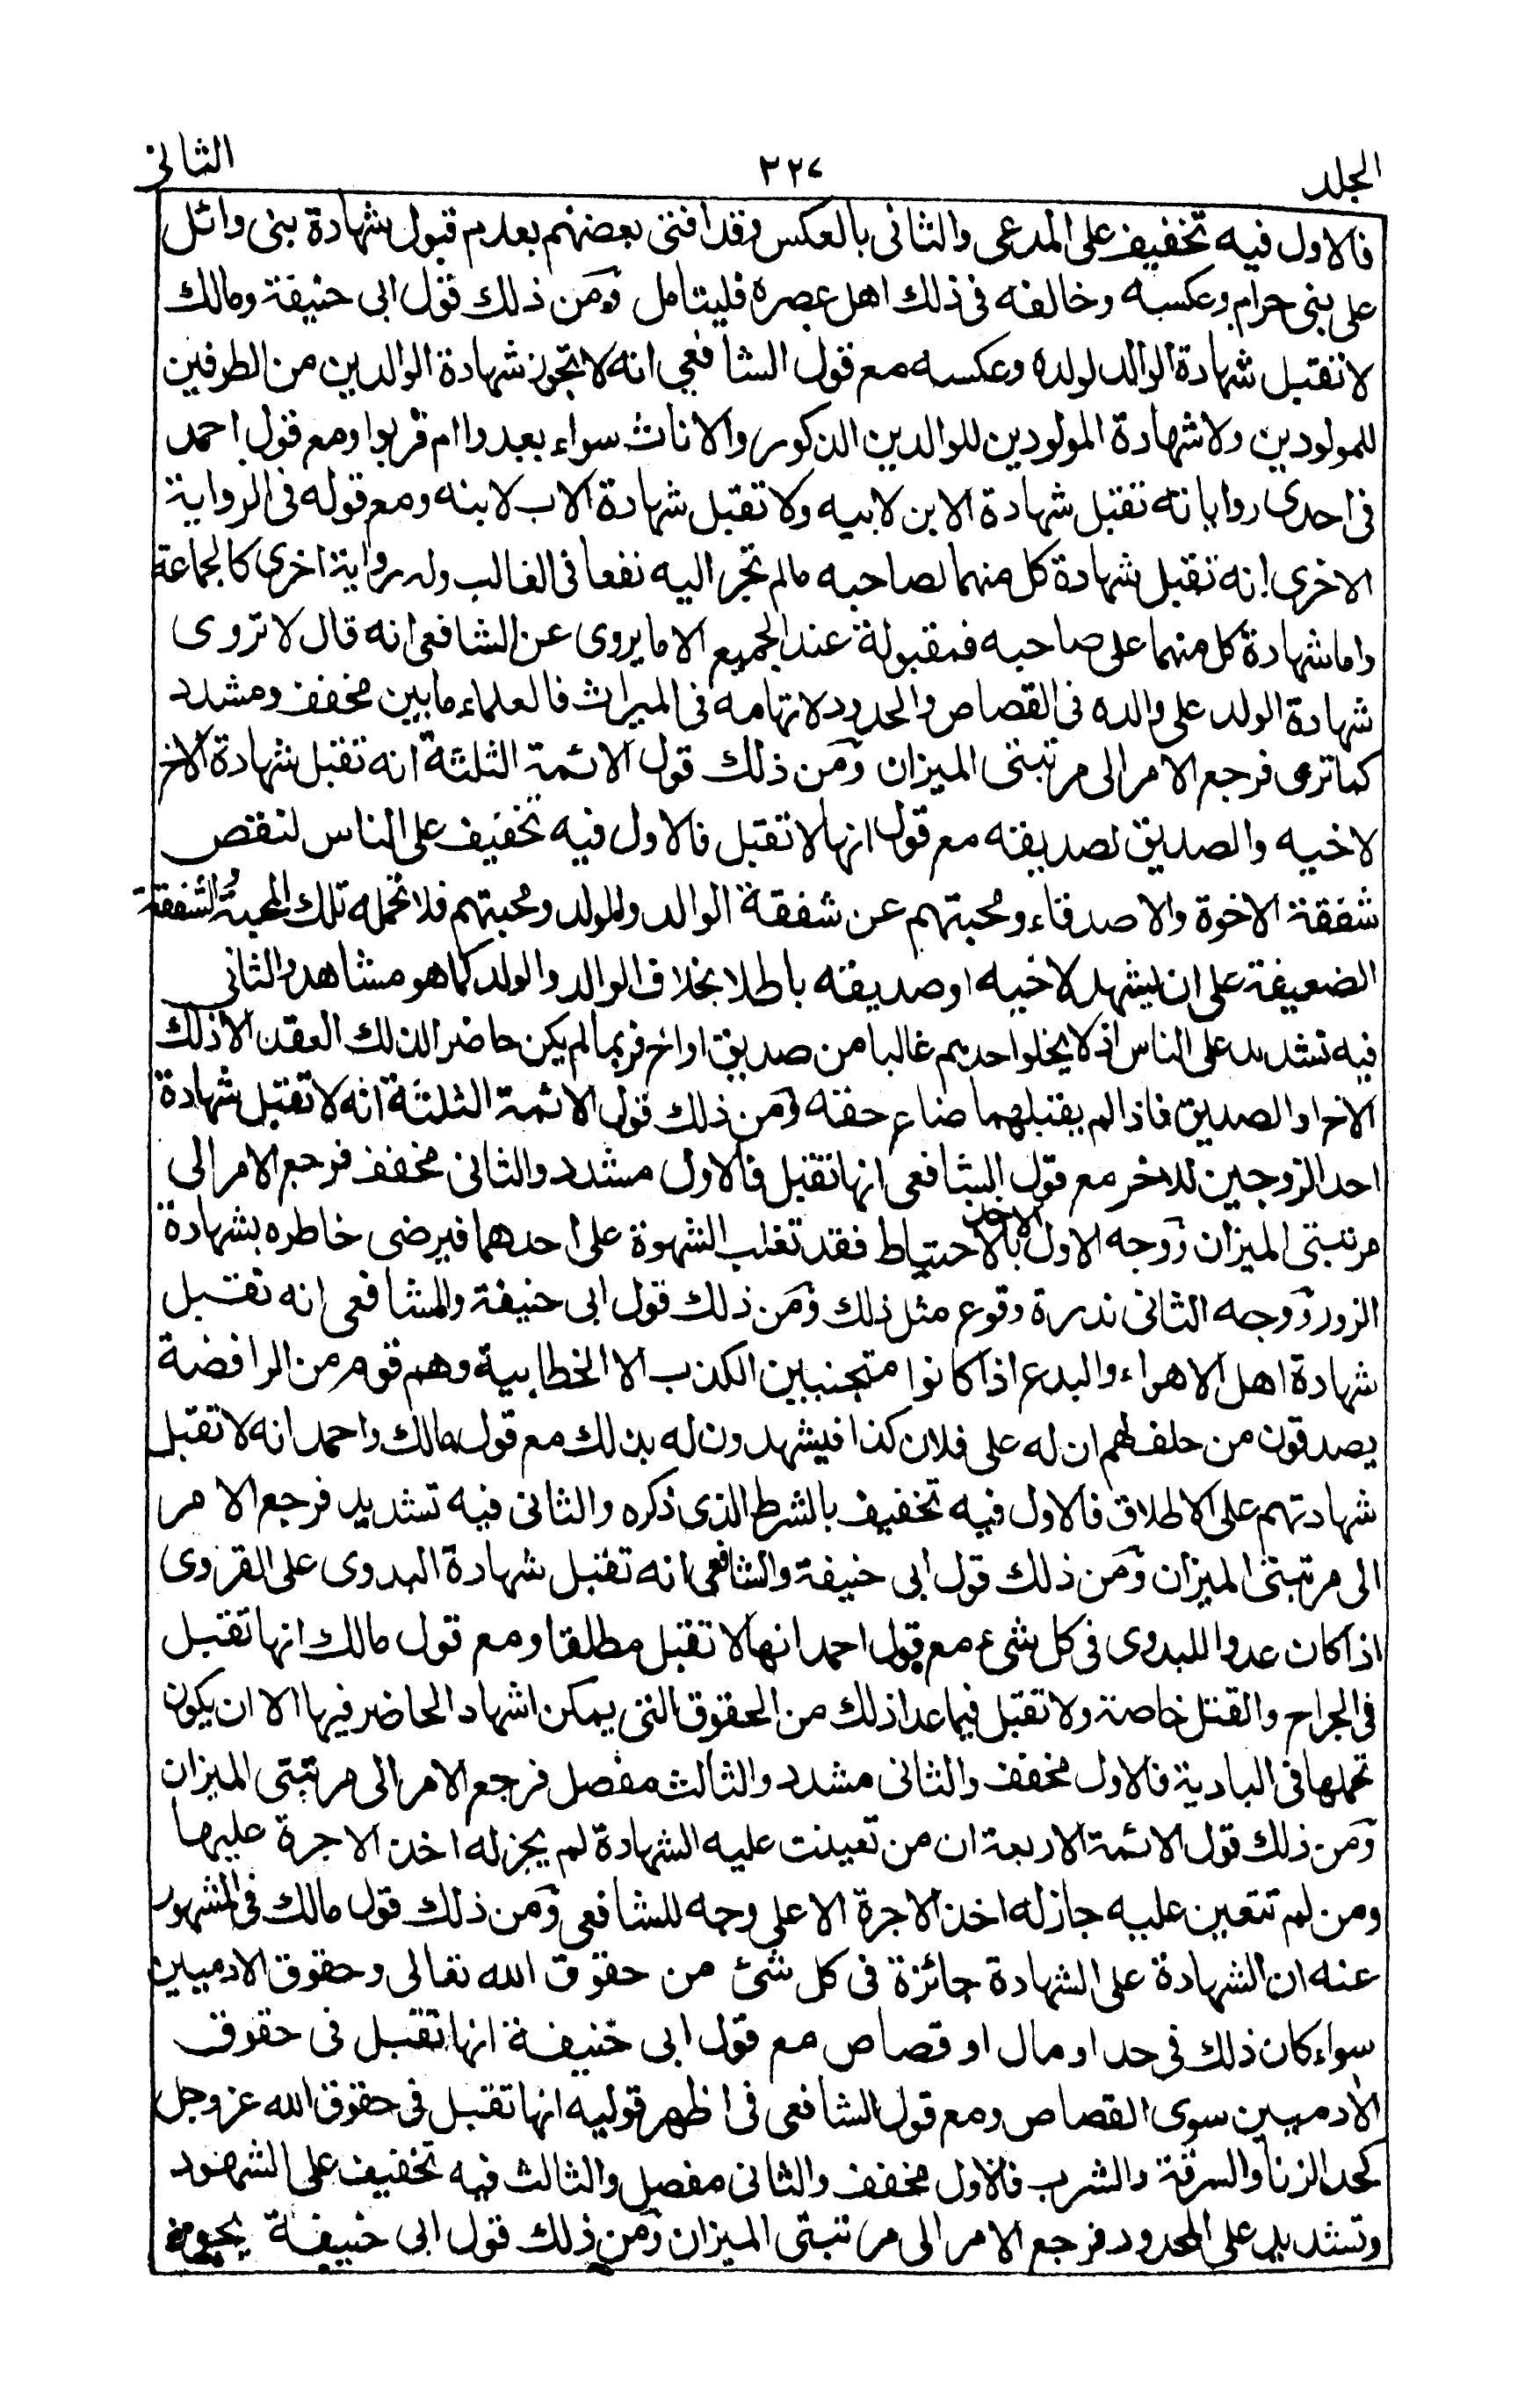 الجلد ٢٢٧ الثانى
فالاول فيه تخفيف على المدعى والثانى بالعكس وقد افتى بعضهم بعدم قبول شهادة بنى وائل
على بنى حرام وعكسه وخالفه فى ذلك اهل عصره فليتامل ومن ذلك قول ابى حنيفة ومالك
لا تقبل شهادة الوالد لولده وعكسه مع قول الشافعي انه لا تجوز شهادة الوالدين من الطرفين
للمولودين ولا شهادة المولودين للوالدين الذكور والاناث سواء بعدوا ام قربوا ومع قول احمد
فى احدى رواياته تقبل شهادة الابن لابيه ولا تقبل شهادة الاب لابنه ومع قوله فى الرواية
الاخرى انه تقبل شهادة كل منهما لصاحبه مالم تجر اليه نفعا فى الغالب وله رواية اخرى كالجماعة
واما شهادة كل منهما على صاحبه فمقبولة عند الجميع الا ما يروى عن الشافعى انه قال لا تروى
شهادة الولد على والده فى القصاص والحدود لاتهامه فى الميراث فالعلماء ما بين مخفف ومشدد
كما ترى فرجع الامر الى مرتبتى الميزان ومن ذلك قول الائمة الثلثة انه تقبل شهادة الاخ
لاخيه والصديق لصديقه مع قول انها لا تقبل فالاول فيه تخفيف على الناس لنقص
شفقة الاخوة والاصدقاء ومحبتهم عن شفقة الوالد والولد ومحبتهم فلا تحمله تلك المحبة والشفقة
الضعيفة على ان يشهد لاخيه او صديقه باطلا بخلاف الوالد والولد كما هو مشاهد والثانى
فيه تشديد على الناس اذ لا يخلوا احدهم غالبا من صديق او اخ فربما لم يكن حاضرا لذلك العقد الا ذلك
الاخ او الصديق فاذا لم يقبلهما ضاع حقه ومن ذلك قول الائمة الثلثة انه لا تقبل شهادة
احد الزوجين للاخر مع قول الشافعى انها تقبل فالاول مشدد والثانى مخفف فرجع الامر الى
مرتبتى الميزان ووجه الاول الاخذ بالاحتياط فقد تغلب الشهوة على احدهما فيرضى خاطره بشهادة
الزور ووجه الثانى ندرة وقوع مثل ذلك ومن ذلك قول ابى حنيفة والشافعى انه تقبل
شهادة اهل الاهواء والبدع اذا كانوا متجنبين الكذب الا الخطابية وهم قوم من الرافضة
يصدقون من حلف لهم ان له على فلان كذا فيشهدون له بذلك مع قول مالك واحمد انه لا تقبل
شهادتهم على الاطلاق فالاول فيه تخفيف بالشرط الذى ذكره والثانى فيه تشديد فرجع الامر
الى مرتبتى الميزان ومن ذلك قول ابى حنيفة والشافعى انه تقبل شهادة البدوى على القروى
اذا كان عدوا للبدوى فى كل شئ مع قول احمد انها لا تقبل مطلقا ومع قول مالك انها تقبل
فى الجراح والقتل خاصة ولا تقبل فيما عدا ذلك من الحقوق التى يمكن اشهاد الحاضر فيها الا ان يكون
تحملها فى البادية فالاول مخفف والثانى مشدد والثالث مفصل فرجع الامر الى مرتبتى الميزان
ومن ذلك قول الائمة الاربعة ان من تعينت عليه الشهادة لم يجز له اخذ الاجرة عليها
ومن لم تتعين عليه جاز له اخذ الاجرة الا على وجه للشافعى ومن ذلك قول مالك فى المشهور
عنه ان الشهادة على الشهادة جائزة فى كل شئ من حقوق الله تعالى وحقوق الادميين
سواء كان ذلك فى حد او مال او قصاص مع قول ابى حنيفة انها تقبل فى حقوق
الادميين سوى القصاص ومع قول الشافعى فى اظهر قوليه انها تقبل فى حقوق الله عز وجل
كحد الزنا والسرقة والشرب فالاول مخفف والثانى مفصل والثالث فيه تخفيف على الشهود
وتشديد على المحدود فرجع الامر الى مرتبتى الميزان ومن ذلك قول ابى حنيفة يجوز